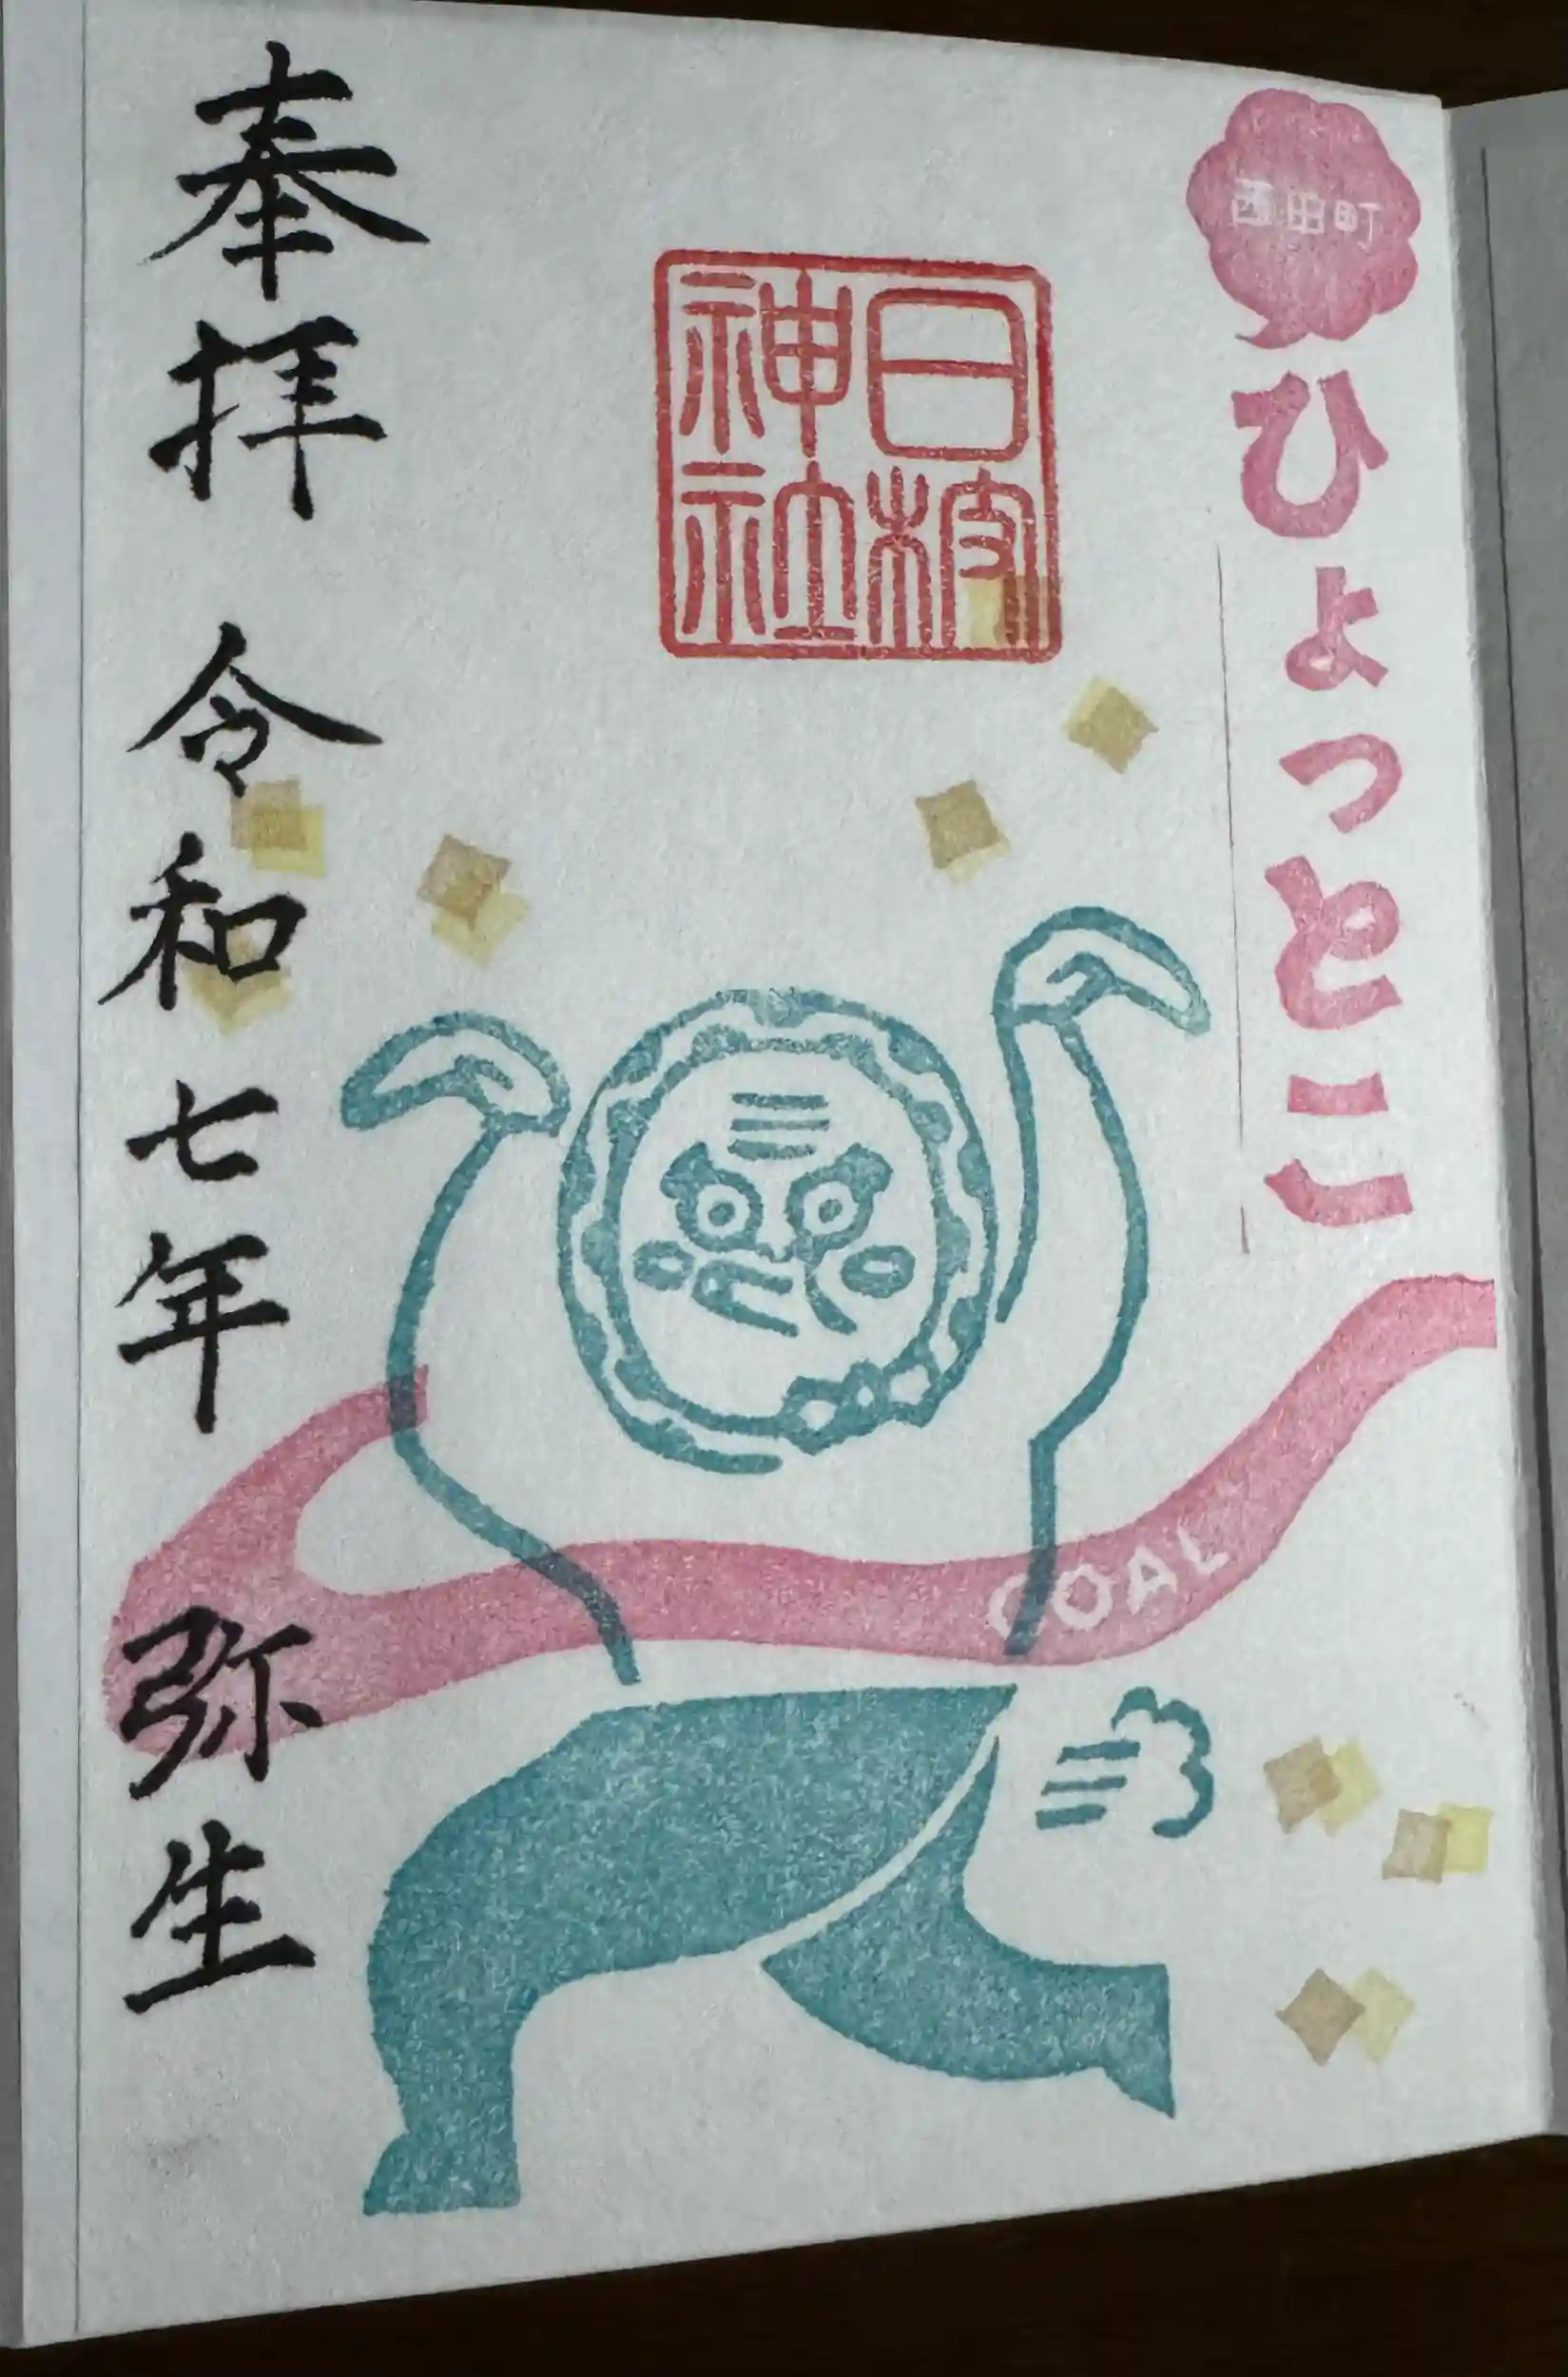 西田町
ひょっとこ
日枝
神社
GOAL
奉拝 令和七年 弥生